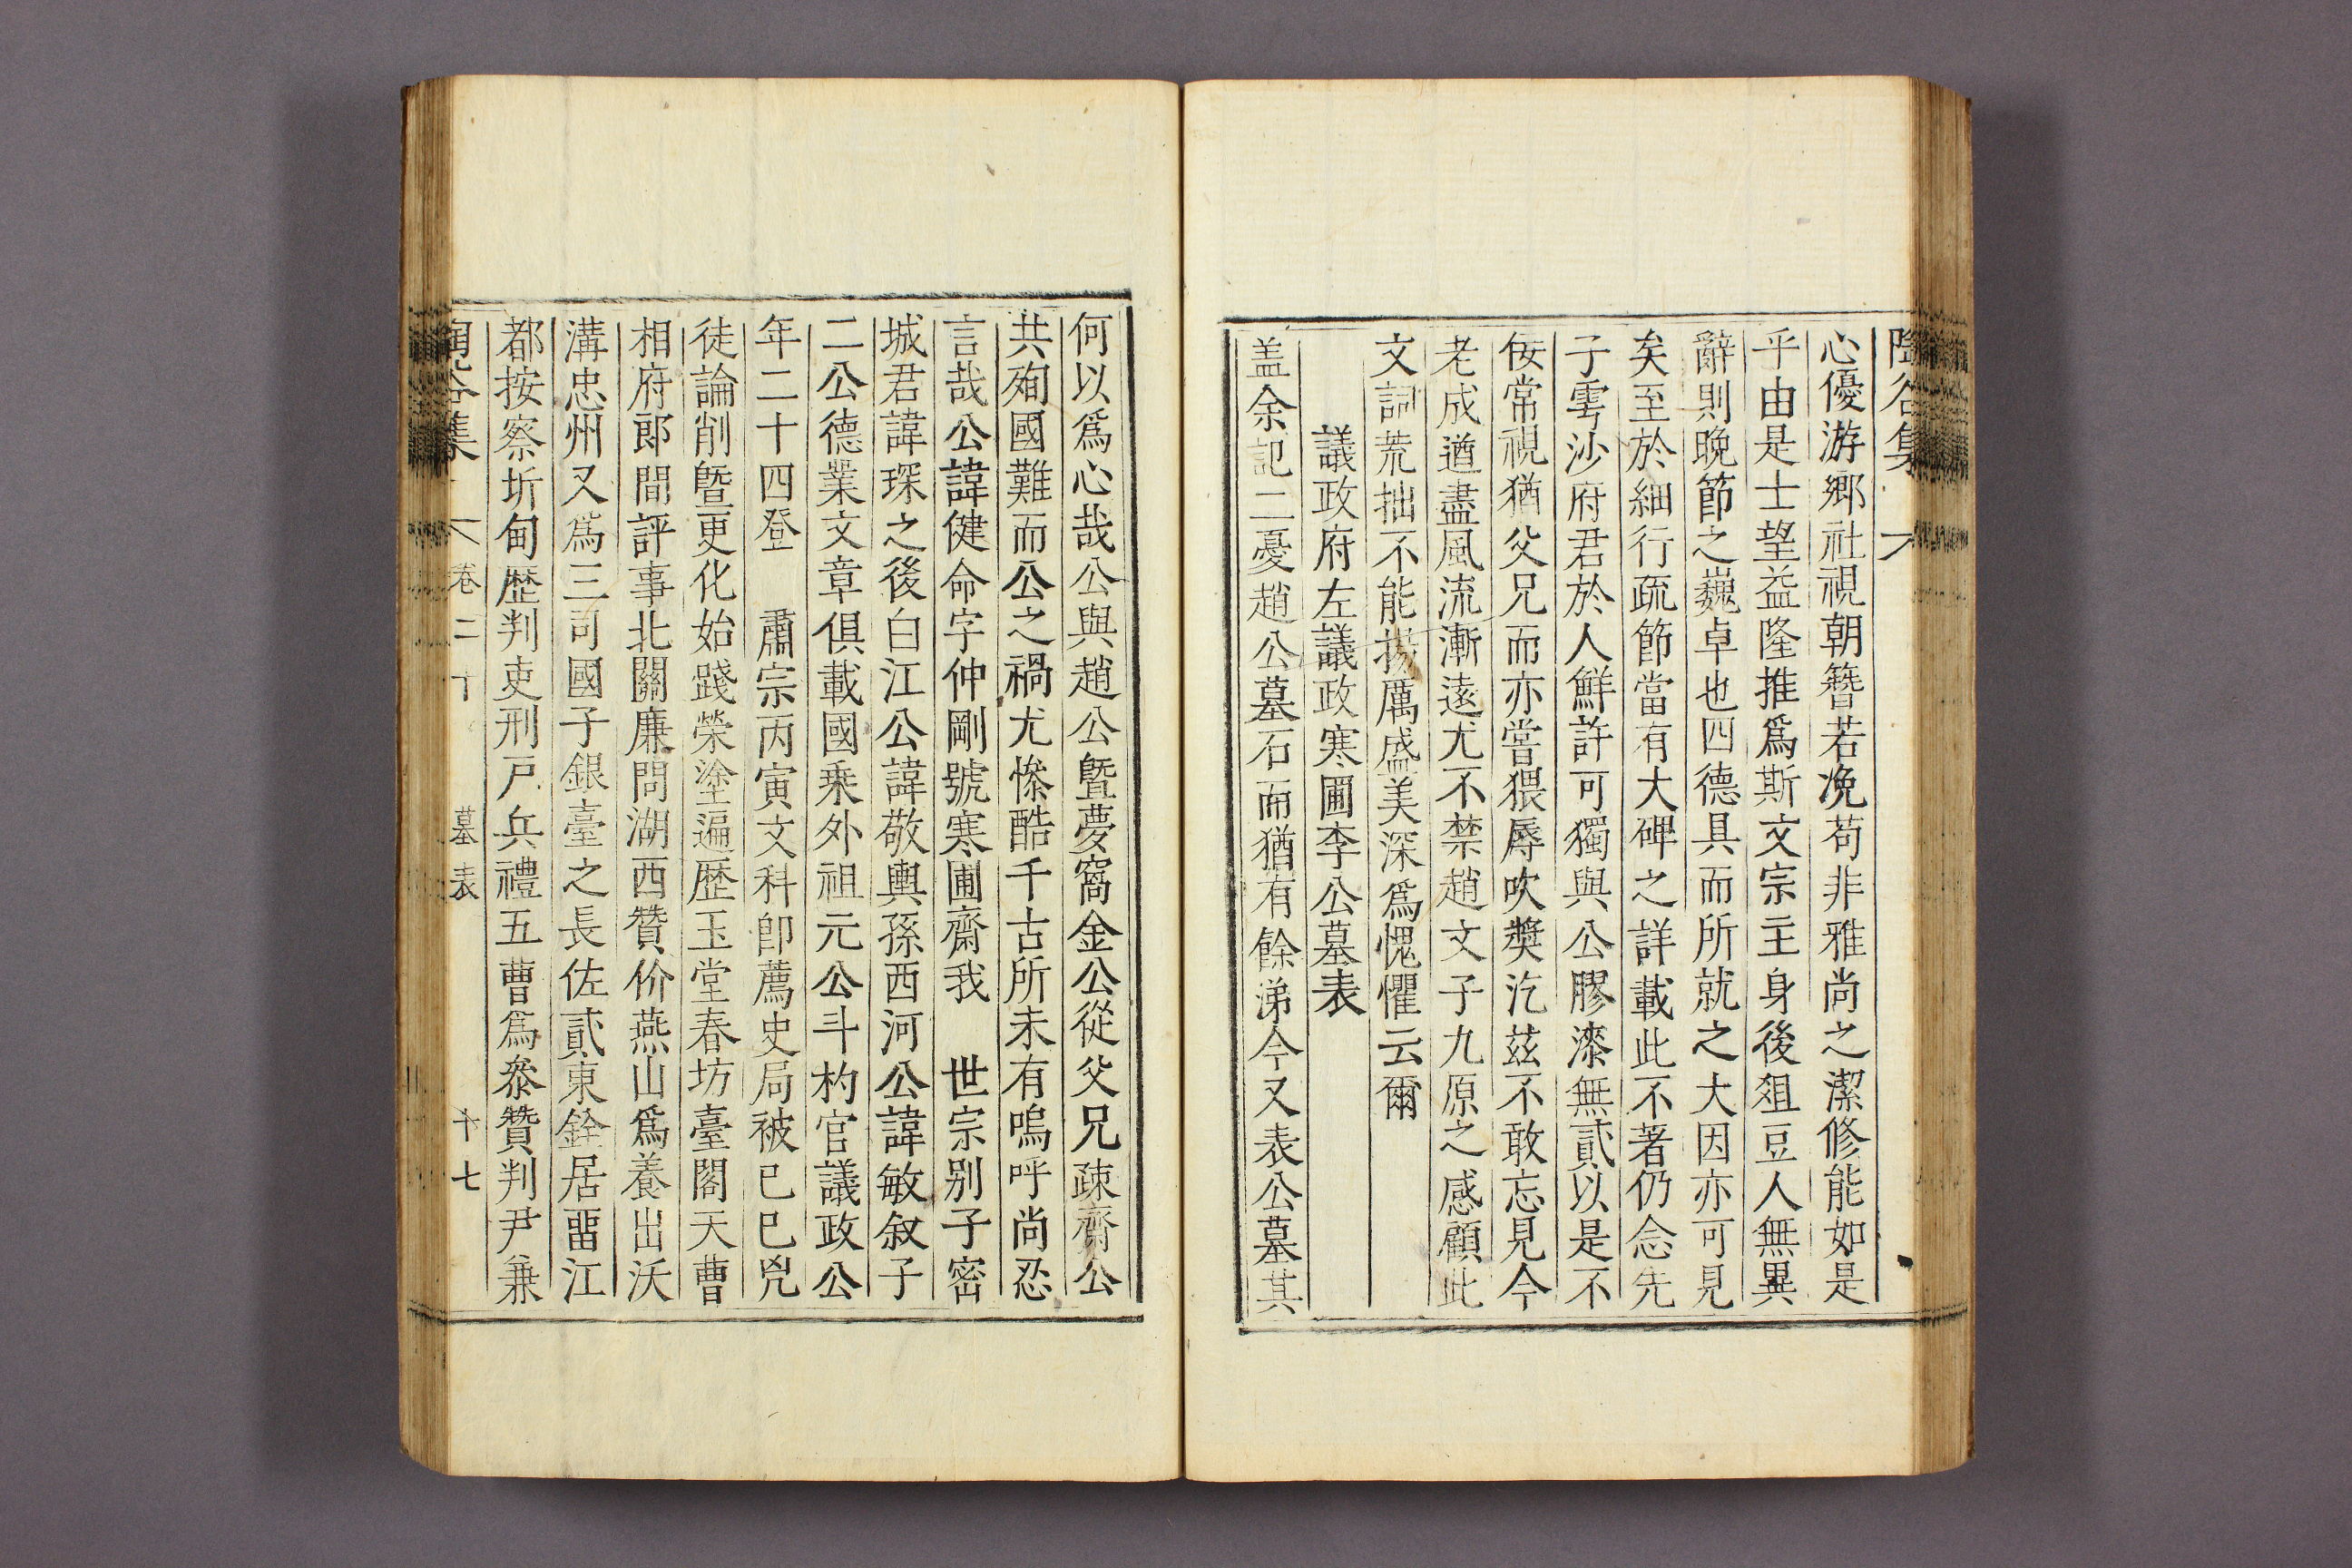 陶谷集
心優游鄉社視朝簪若浼苟非雅尚之潔修能如是
乎由是士望益隆推爲斯文宗主身後俎豆人無異
辭則晚節之巍卓也四德具而所就之大因亦可見
矣至於細行疏節當有大碑之詳載此不著仍念先
子雩沙府君於人鮮許可獨與公膠漆無貳以是不
佞常視猶父兄而亦嘗猥辱吹奬汔玆不敢忘見今
老成遒盡風流漸遠尤不禁趙文子九原之感顧此
文詞荒拙不能揚厲盛美深爲愧懼云爾
議政府左議政寒圃李公墓表
盖余記二憂趙公墓石而猶有餘涕今又表公墓其
何以爲心哉公與趙公曁夢窩金公從父兄疎齋公
共殉國難而公之禍尤慘酷千古所未有嗚呼尚忍
言哉公諱健命字仲剛號寒圃齋我 世宗别子密
城君諱琛之後白江公諱敬輿孫西河公諱敏叙子
二公德業文章俱載國乗外祖元公斗杓官議政公
年二十四登 肅宗丙寅文科卽薦史局被己巳兇
徒論削曁更化始踐榮塗遍歷玉堂春坊臺閣天曹
相府郎間評事北關廉問湖西贊价燕山爲養出沃
溝忠州又爲三司國子銀臺之長佐貳東銓居畱江
都按察圻甸歷判吏刑戶兵禮五曹爲叅贊判尹兼
陶谷集 卷二十 墓表 十七